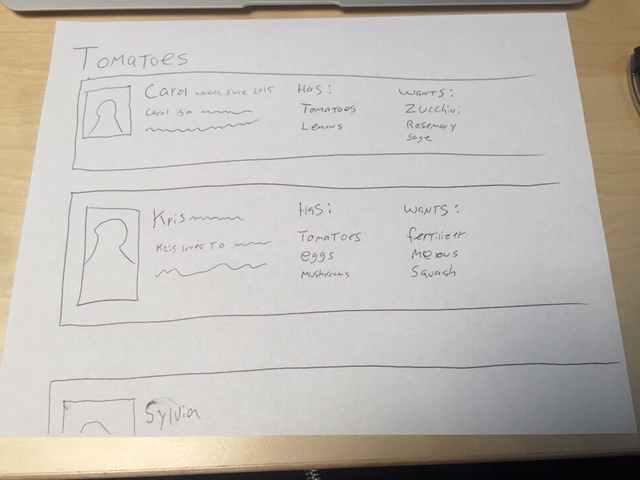 Tomatoes
Carol member since 2015
Carol is a
Has:
Tomatoes
Lemons
Wants:
Zucchini
Rosemary
Sage
Kris
Kris loves to
Has:
Tomatoes
eggs
Mushrooms
Wants:
fertilizer
Melons
Squash
Sylvia